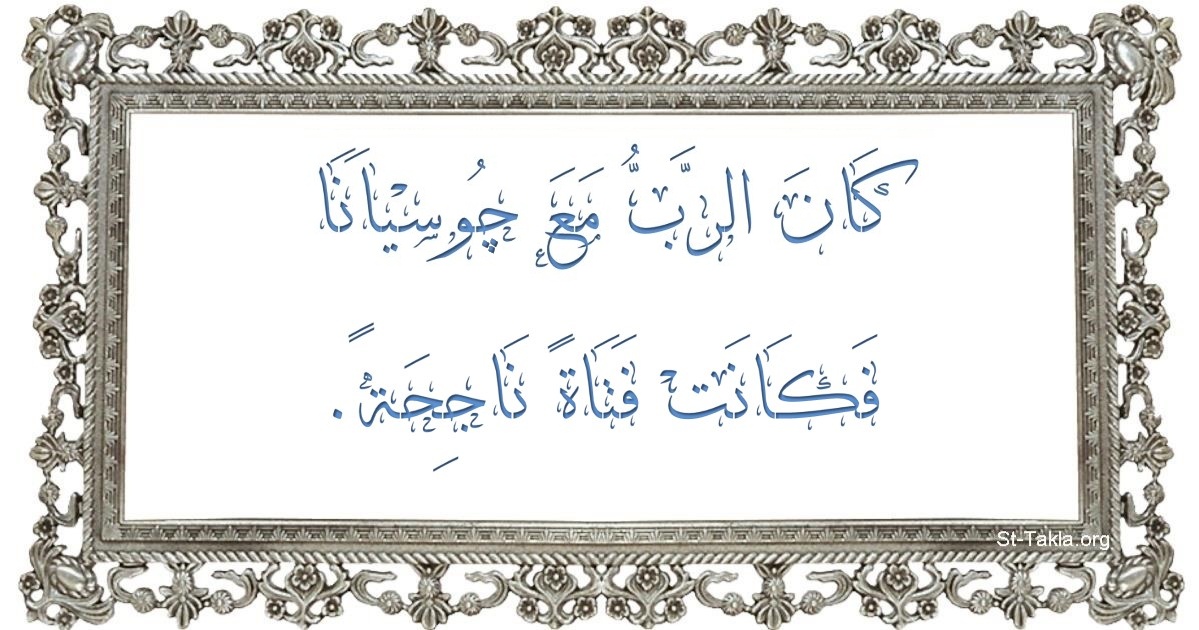 كَانَ الرَّبُّ مَعَ چُوسْيَانَا
فَكَانَتْ فَتَاةً نَاجِحَةً.
St-Takla.org